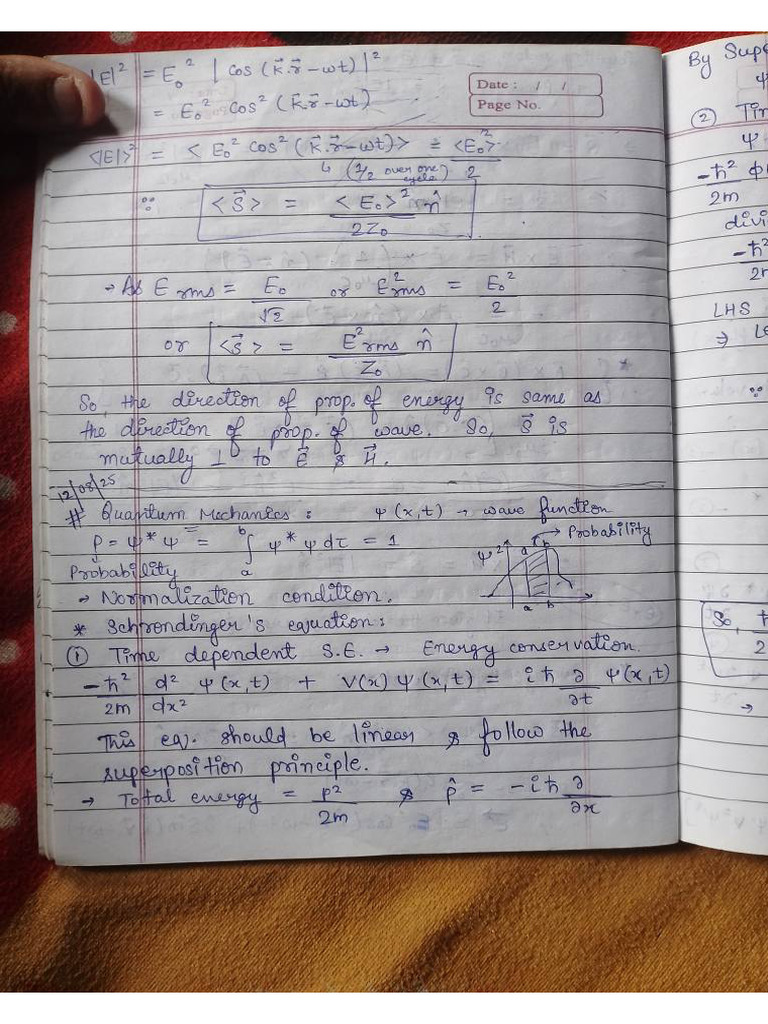 |E|² = E₀² | cos (k⃗.r⃗ - ωt) |²
= E₀² cos² (k⃗.r⃗ - ωt)
Date : / /
Page No.
<|E|>² = < E₀² cos² (k⃗.r⃗ - ωt) > = <E₀>²/2
↳ (1/2 over one cycle)
∵ <S⃗> = <E₀>²/2Z₀ n̂
→ As E rms = E₀/√2 or E²rms = E₀²/2
or <S⃗> = E²rms/Z₀ n̂
So, the direction of prop. of energy is same as
the direction of prop. of wave. So, S⃗ is
mutually ⊥ to E⃗ & H⃗.
12/08/25
# Quantum Mechanics : ψ(x,t) → wave function
P = ψ* ψ = ∫ₐᵇ ψ* ψ dτ = 1
Probability
ψ² a b → Probability
a b
→ Normalization condition.
* Schrondinger's equation :
① Time dependent S.E. → Energy conservation.
-ħ²/2m d²/dx² ψ(x,t) + V(x) ψ(x,t) = iħ ∂/∂t ψ(x,t)
This eq. should be linear & follow the
superposition principle.
→ Total energy = p²/2m & p̂ = -iħ ∂/∂x
By Supe
ψ
② Tim
ψ
-ħ²/2m φ
divi
-ħ²
LHS
⇒
∵
So,
→